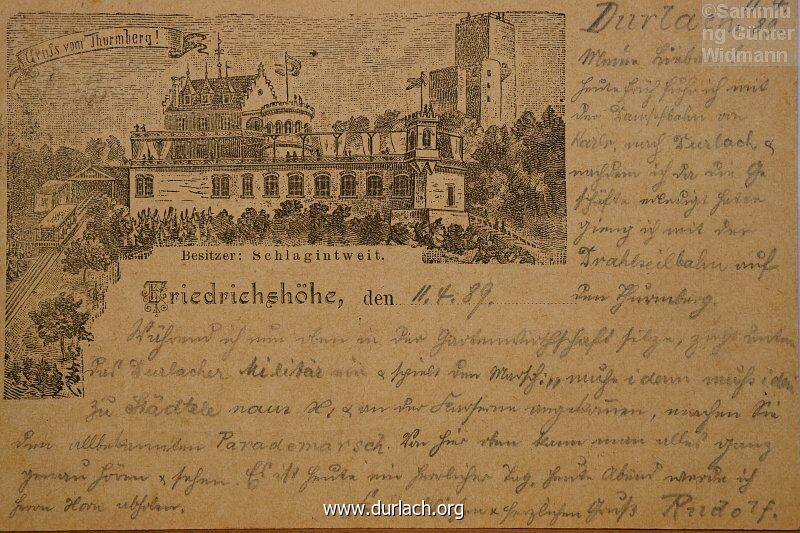 ©Sammlu
ng Günter
Widmann
Gruß vom Thurmberg!
Durlach 11.4.89
Meine Liebe
heute früh fuhr ich mit
der Dampfbahn von
Karlsr. nach Durlach &
nachdem ich da die Ge
schäfte erledigt hatte
gieng ich mit der
Drahtseilbahn auf
den Thurmberg.
Besitzer: Schlagintweit.
Friedrichshöhe, den 11.4.89.
Während ich nun oben in der Gartenwirthschaft sitze, zieht unten
das Durlacher Militär ein & spielt den Marsch: „muss i denn muss i denn
zu Städtele naus &, & an der Kaserne angekommen, machen Sie
den allbekannten Parademarsch. Von hier oben kann man alles ganz
genau hören & sehen. Es ist heute ein herrlicher Tag, heute Abend werde ich
Herrn Horn abholen. & herzlichen Gruß Rudolf.
www.durlach.org